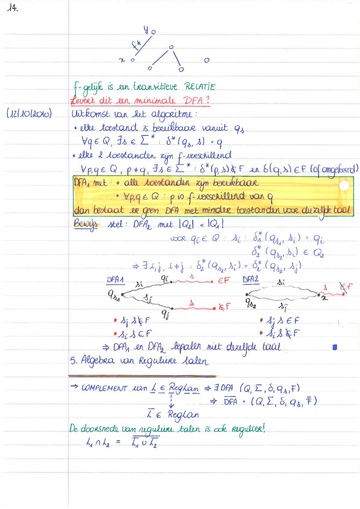 14.
y
f*
x
f-gelijk is een transitieve RELATIE
Levert dit een minimale DFA?
(12/10/2010) Uitkomst van het algoritme:
• elke toestand is bereikbaar vanuit qₛ
∀q ∈ Q, ∃s ∈ Σ* : δ*(qₛ, s) = q
• elke 2 toestanden zijn f-verschillend
∀p,q ∈ Q, p ≠ q, ∃s ∈ Σ* : δ*(p,s) ∉ F en δ(q,s) ∈ F (of omgekeerd)
DFA₁ met : • alle toestanden zijn bereikbaar
• ∀p,q ∈ Q : p is f-verschillend van q
dan bestaat er geen DFA met minder toestanden voor dezelfde taal
Bewijs stel : DFA₂ met |Q₂| < |Q₁|
voor qᵢ ∈ Q : sᵢ : δ₁*(qₛ₁, sᵢ) = qᵢ
δ₂*(qₛ₂, sᵢ) ∈ Q₂
⇒ ∃ i,j, i ≠ j : δ₂*(qₛ₂, sᵢ) = δ₂*(qₛ₂, sⱼ)
DFA1 qᵢ s ∈F DFA2
sᵢ sᵢ s
qₛ₁ qₛ₂ F
sⱼ qⱼ s ∉F sⱼ
• sⱼs ∉ F • sⱼs ∈ F
• sᵢs ∈ F • sᵢs ∉ F
⇒ DFA₁ en DFA₂ bepalen niet dezelfde taal
5. Algebra van Reguliere talen
→ COMPLEMENT van L ∈ RegLan ⇒ ∃ DFA (Q, Σ, δ, qₛ, F)
⇒ DFA = (Q, Σ, δ, qₛ, F̄)
L̄ ∈ RegLan
De doorsnede van reguliere talen is ook regulier!
L₁ ∩ L₂ =